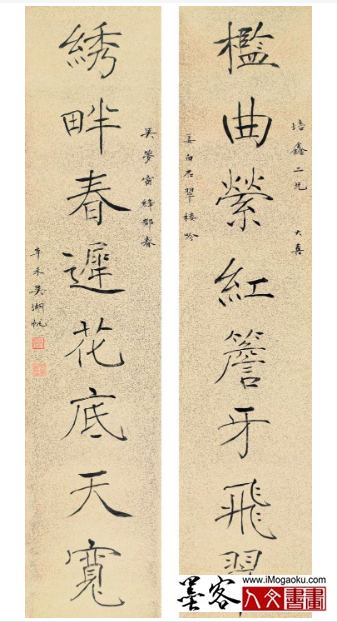 培鑫二兄 大喜
檻曲縈紅簷牙飛翠
姜白石翠樓吟
吳夢窗絳都春
綉畔春遲花底天寬
辛未吳湖帆
墨客
www.iMogaoku.com
人文書畫